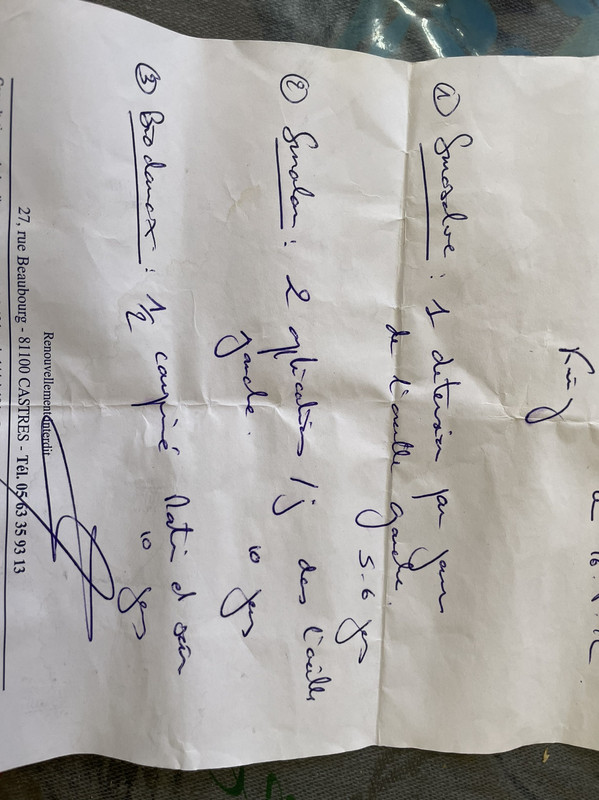 King
① Surosolve : 1 detersion par jour
de l'oreille gauche.
5-6 jrs
② Surolan : 2 applications /j dans l'oreille
gauche.
10 jrs
③ : 1/2 comprimé Matin et soir
10 jrs
Renouvellement interdit
27, rue Beaubourg - 81100 CASTRES - Tél. 05 63 35 93 13